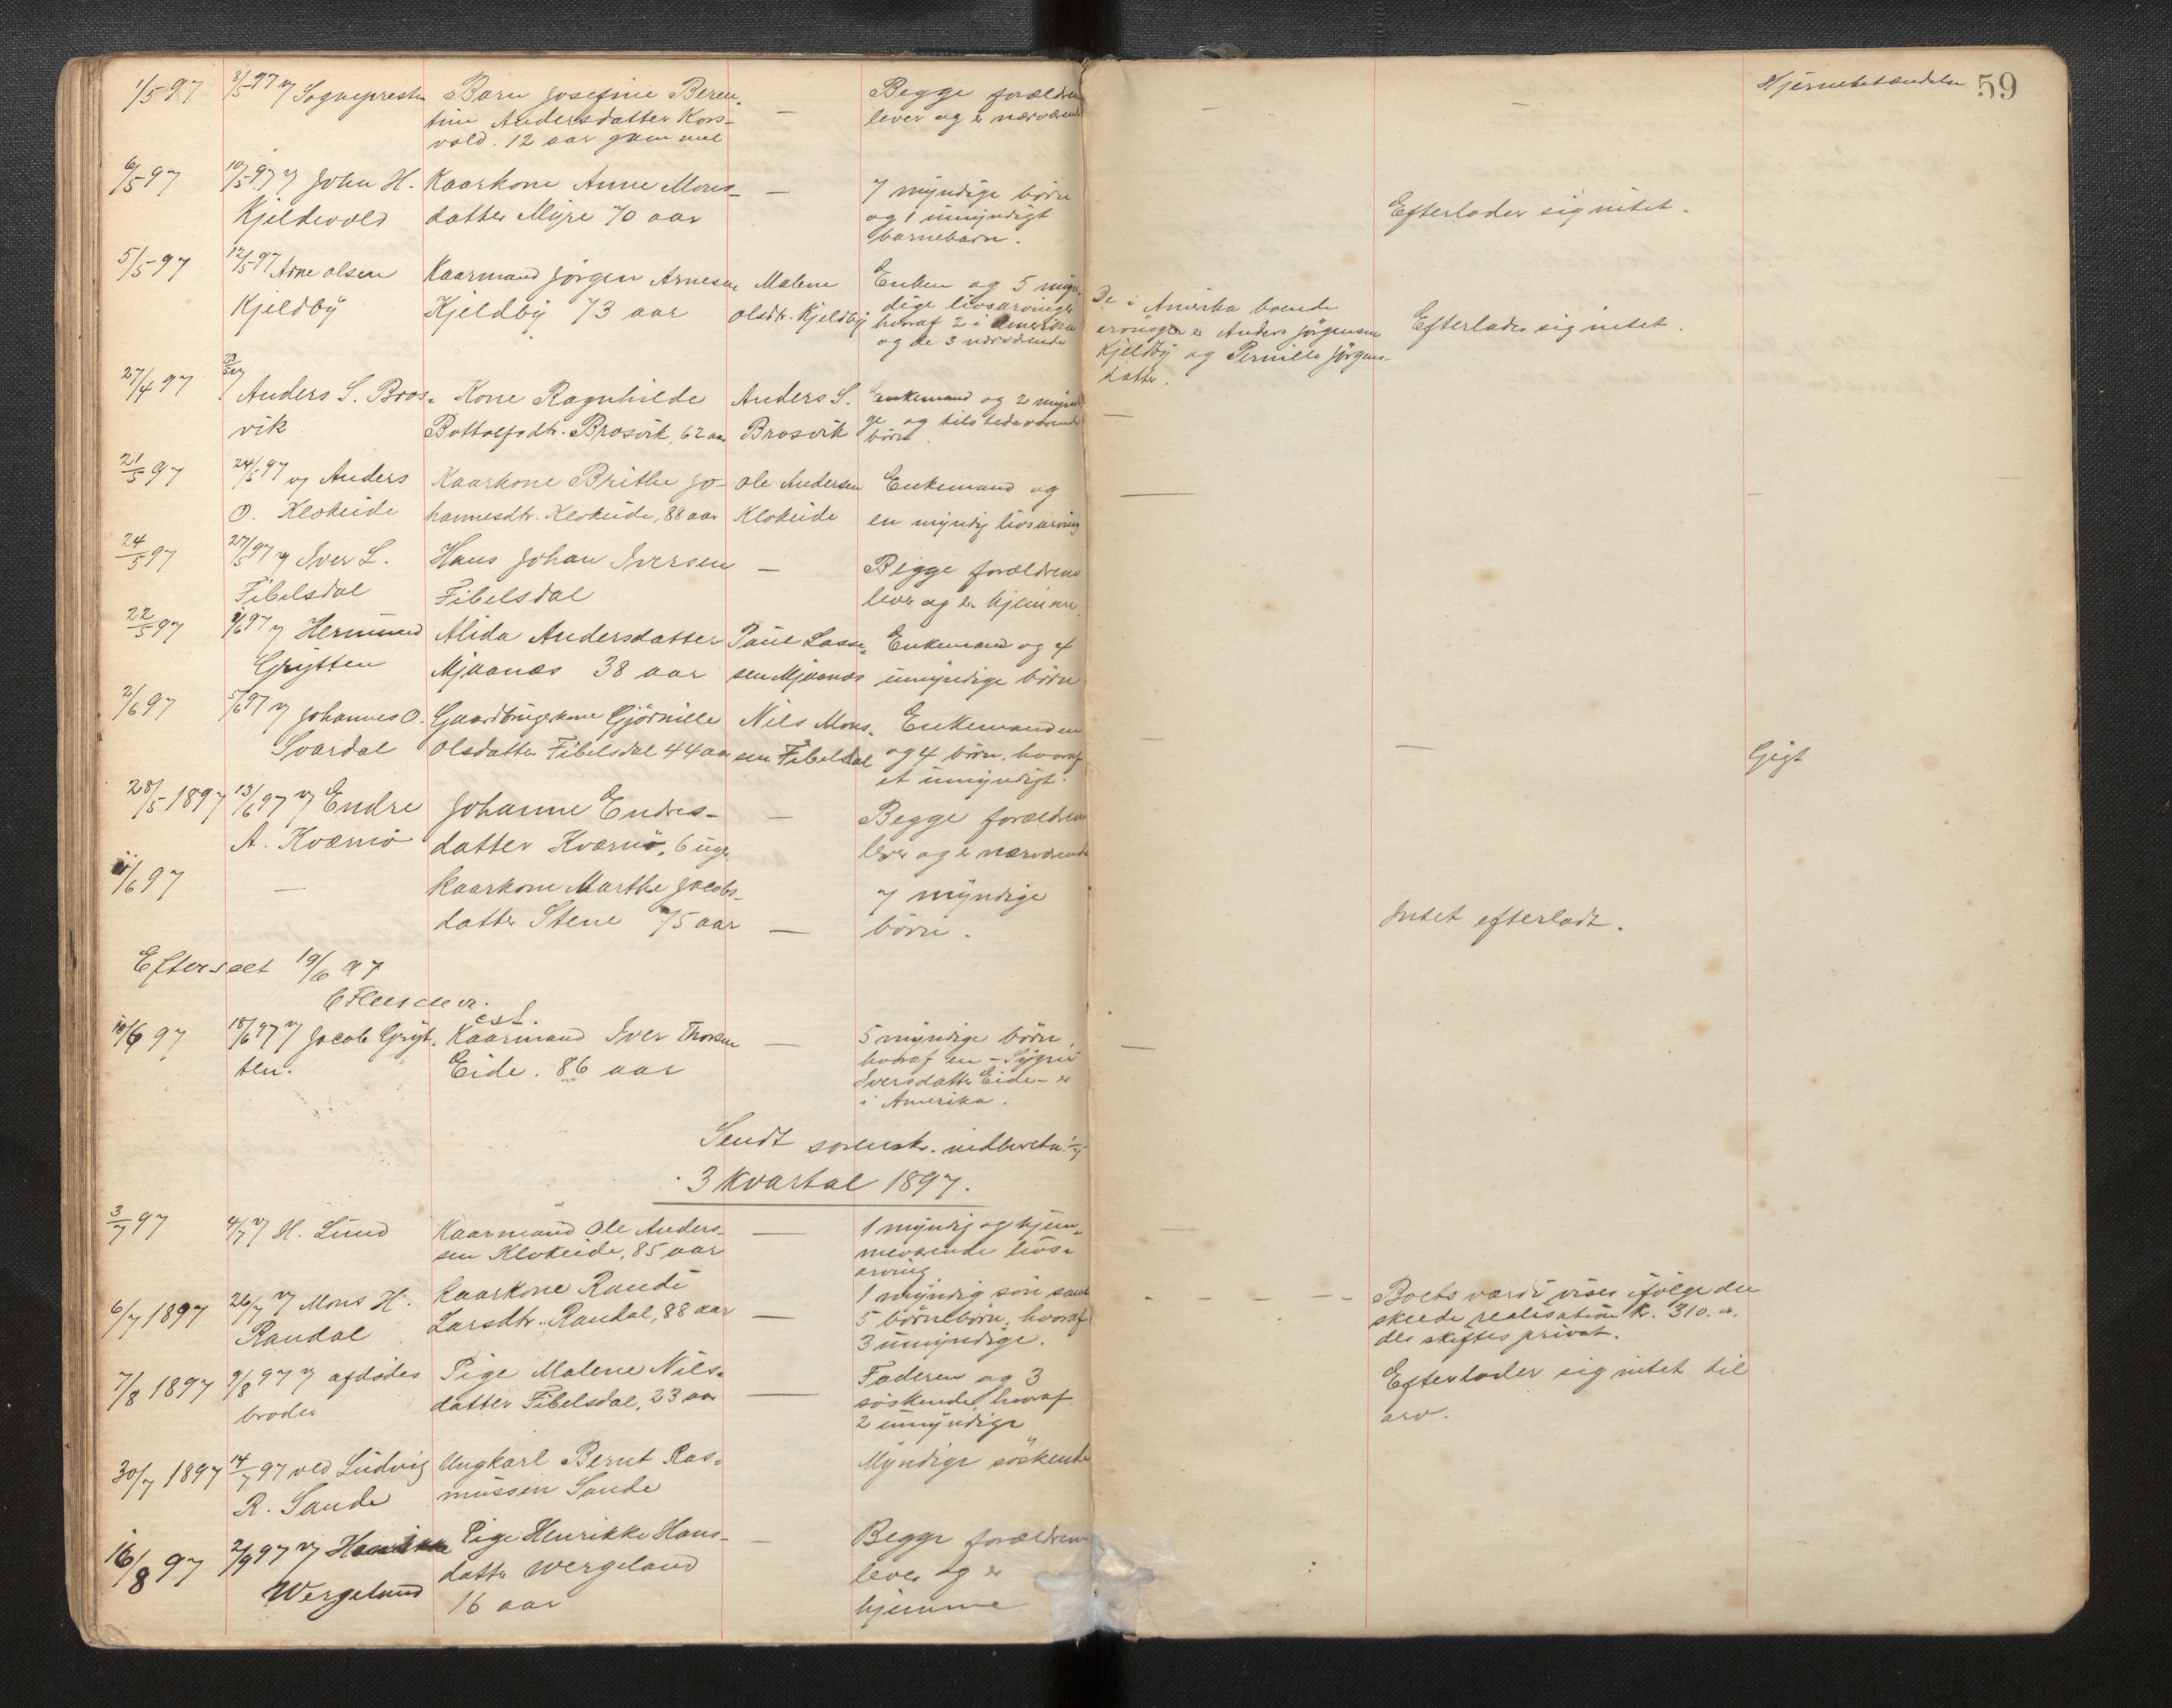 59
Hjernebetændelse
1/5 97
8/5 97 v/ Sogneprest
Barn Josefine Beren-
tine Andersdatter Kors-
vold. 12 aar gammel
—
Begge forældrene
lever og er nærværende
—
—
6/5 97
10/5 97 v/ John H.
Kjeldevold
Kaarkone Anne Mons-
datter Myre 70 aar
—
7 myndige börn
og 1 umyndigt
barnebarn.
Efterlader sig intet.
5/5 97
12/5 97 Arne Olsen
Kjeldby
Kaarmand Jörgen Arnesen
Kjeldby 73 aar
Malene
Olsdtr. Kjeldby
Enken og 5 myn-
dige livsarvinger
hvoraf 2 i Amerika
og de 3 nærværende
De i Amerika boende
arvinger er Anders Jörgensen
Kjeldby og Pernille Jörgens-
datter.
Efterlader sig intet.
27/4 97
Anders S. Bros-
vik
Kone Ragnhilde
Bottolfsdtr. Brosvik, 62 aar
Anders S.
Brosvik
Enkemand og 2 myndi-
ge og tilstedeværende
börn.
—
21/5 97
24/5 97 v/ Anders
O. Klokeide
Kaarkone Brithe Jo-
hannesdtr. Klokeide, 88 aar
Ole Andersen
Klokeide
Enkemand og
en myndig livsarving
—
—
24/5 97
27/5 97 v/ Iver L.
Fibelsdal
Hans Johan Iversen
Fibelsdal
—
Begge forældrene
lever og er hjemme.
22/5 97
97 v/ Hermund
Grytten
Alida Andersdatter
Mjaanæs 38 aar
Paul Lasse-
sen Mjaanæs
Enkemand og 4
umyndige börn
2/6 97
5/6 97 v/ Johannes O.
Svardal
Gaardbrugerkone Gjörnille
Olsdatter Fibelsdal 44 aar
Nils Mons-
sen Fibelsdal
Enkemanden
og 4 börn, hvoraf
et umyndigt.
—
Gigt
28/5 1897
13/6 97 v/ Endre
A. Kværnö
Johanne Endres-
datter Kværnö, 6 uger
—
Begge forældrene
lever og er nærværende
11/6 97
—
Kaarkone Marthe Jacobs-
datter Stene 75 aar
—
7 myndige
börn.
Intet efterladt.
Efterseet 19/6 97
cst.
10/6 97
18/6 97 v/ Jacob Gryt-
ten.
Kaarmand Iver Thorsen
Eide. 86 aar
—
5 myndige börn,
hvoraf en – Sygni
Iversdatter Eide – er
i Amerika.
—
Sendt sorensk. indberetn.
3 Kvartal 1897.
3/7 97
4/7 v/ H. Lund
Kaarmand Ole Anders-
sen Klokeide, 85 aar
—
1 myndig og hjem-
meværende livs-
arving
6/7 1897
26/7 v/ Mons H.
Randal
Kaarkone Randi
Larsdtr. Randal, 88 aar
—
1 myndig sön samt
5 börnebörn, hvoraf
3 umyndige.
Boets værdi vises ifölge den
skeede realisation kr. 310.
der skiftes privat.
7/8 1897
9/8 97 v/ afdödes
broder
Pige Malene Nils-
datter Fibelsdal, 23 aar
—
Faderen og 3
söskende, hvoraf
2 umyndige
Efterlader sig intet til
arv.
30/7 1897
14/7 97 ved Ludvig
R. Sande
Ungkarl Bernt Ras-
mussen Sande
Myndige söskende
16/8 97
2/9 97 v/
Wergeland
Pige Henrikke Hans-
datter Wergeland
16 aar
—
Begge forældrene
lever og er
hjemme